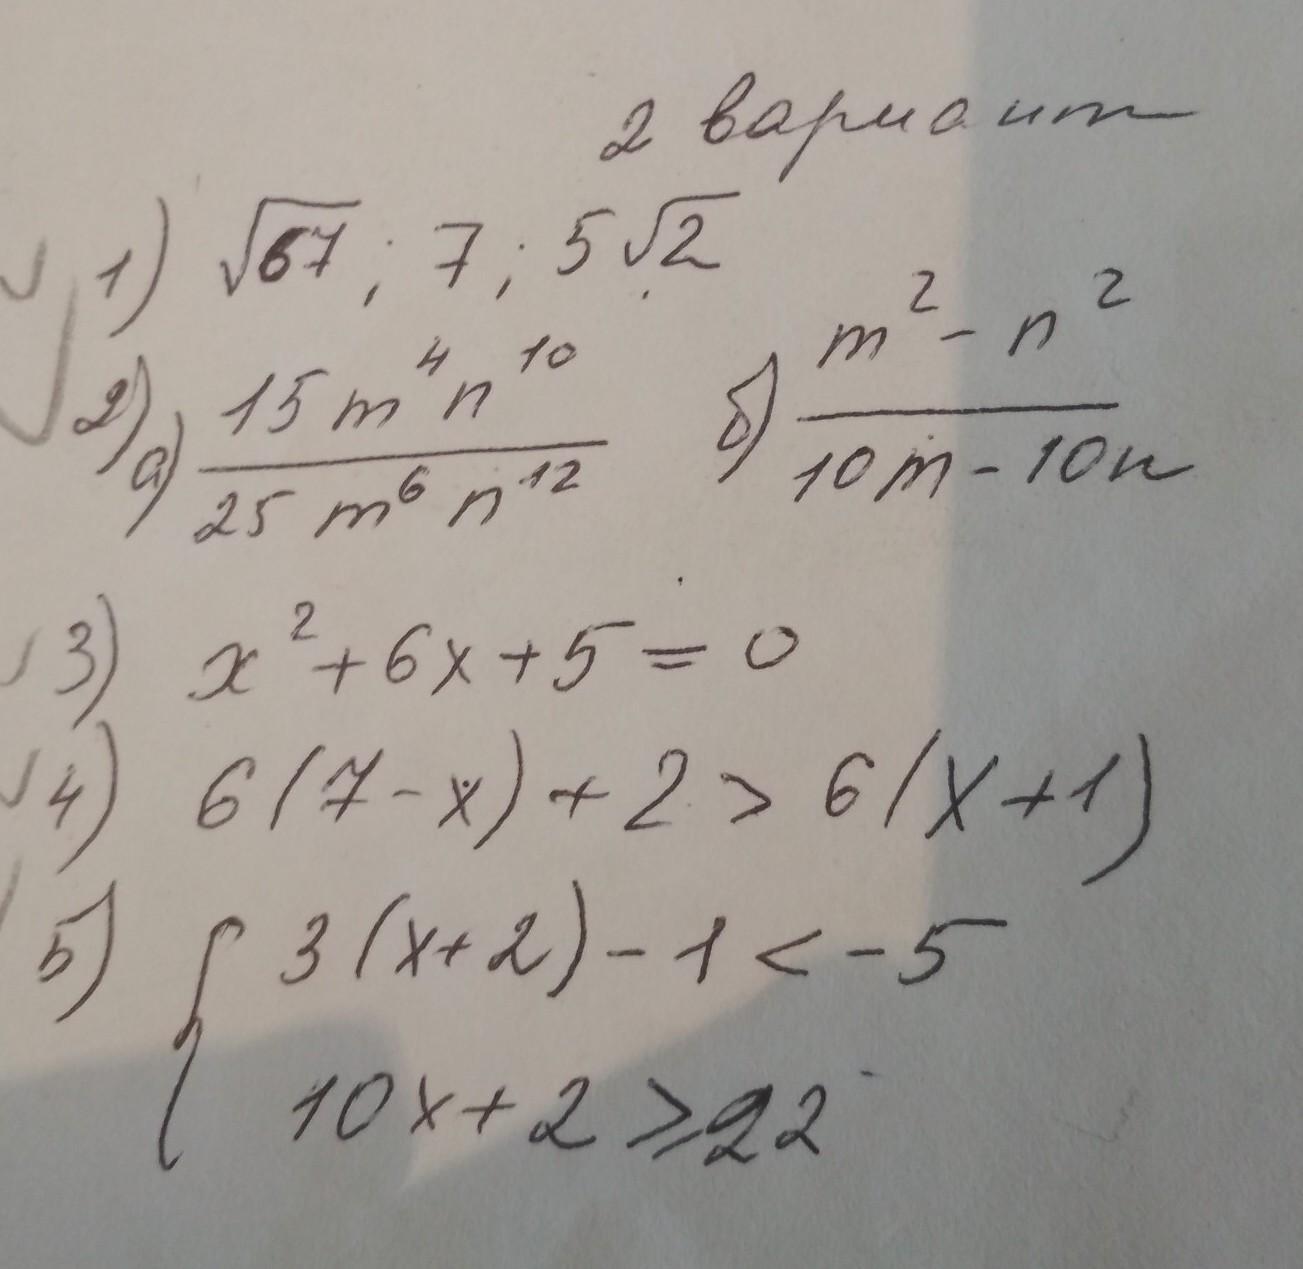 2 вариант
1) √67; 7; 5√2
2) а) (15m⁴n¹⁰)/(25m⁶n¹²) б) (m² - n²)/(10m - 10n)
3) x² + 6x + 5 = 0
4) 6(7 - x) + 2 > 6(x + 1)
5) { 3(x + 2) - 1 < -5
10x + 2 ⩾ 22